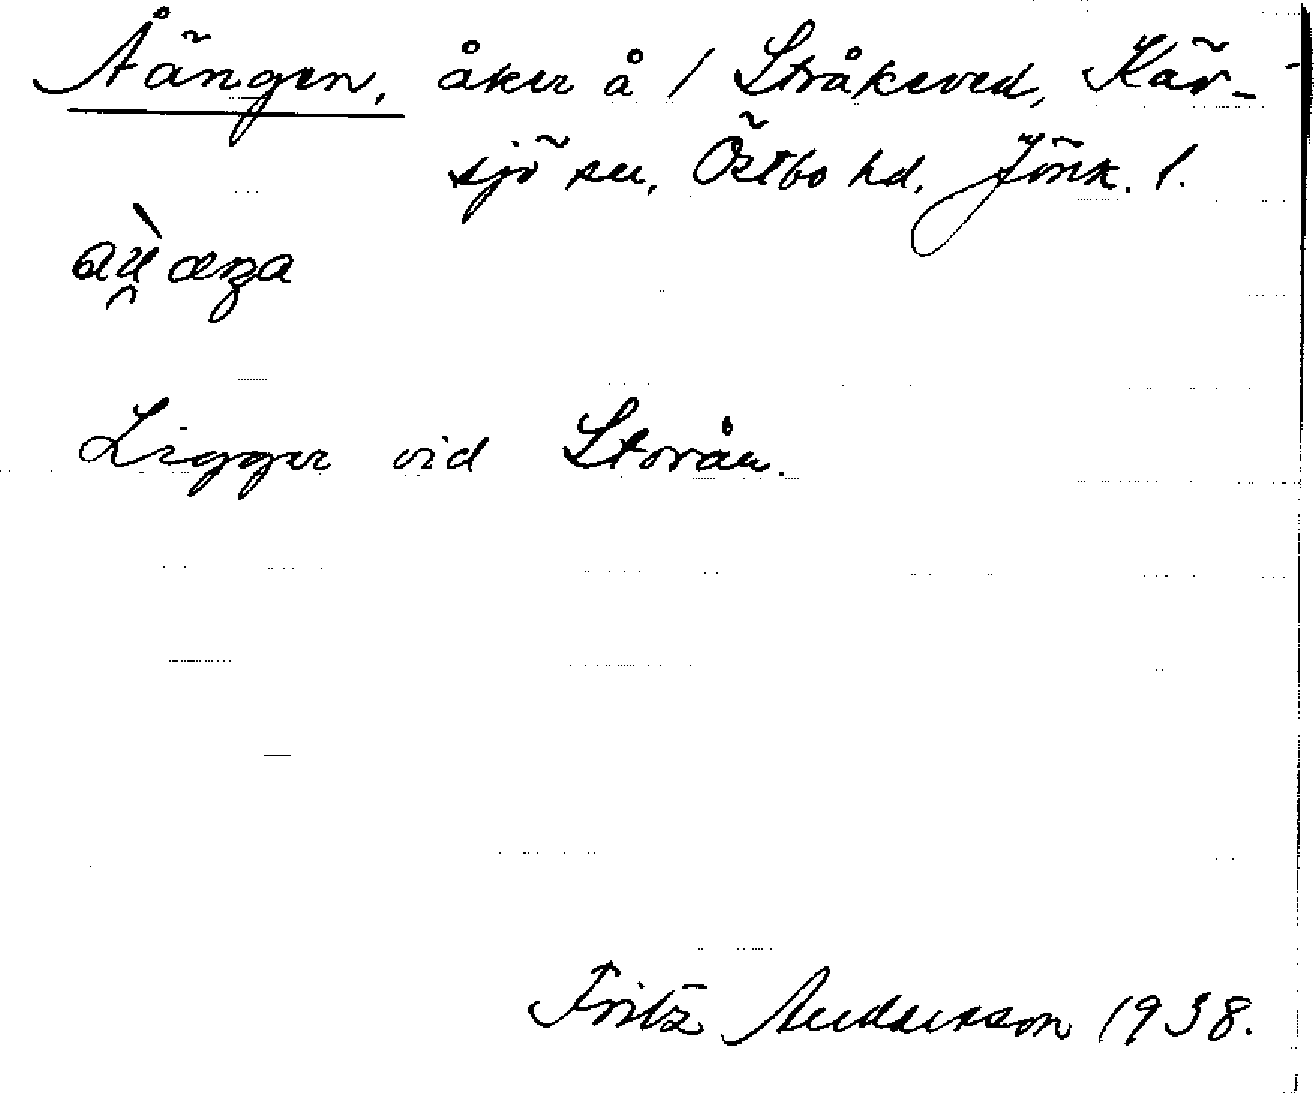 Åängen, åker å 1 Stråkeved, Kär-
sjö sn, Östbo hd, Jönk. l.
Ligger vid Storån.
Fritz Andersson 1938.